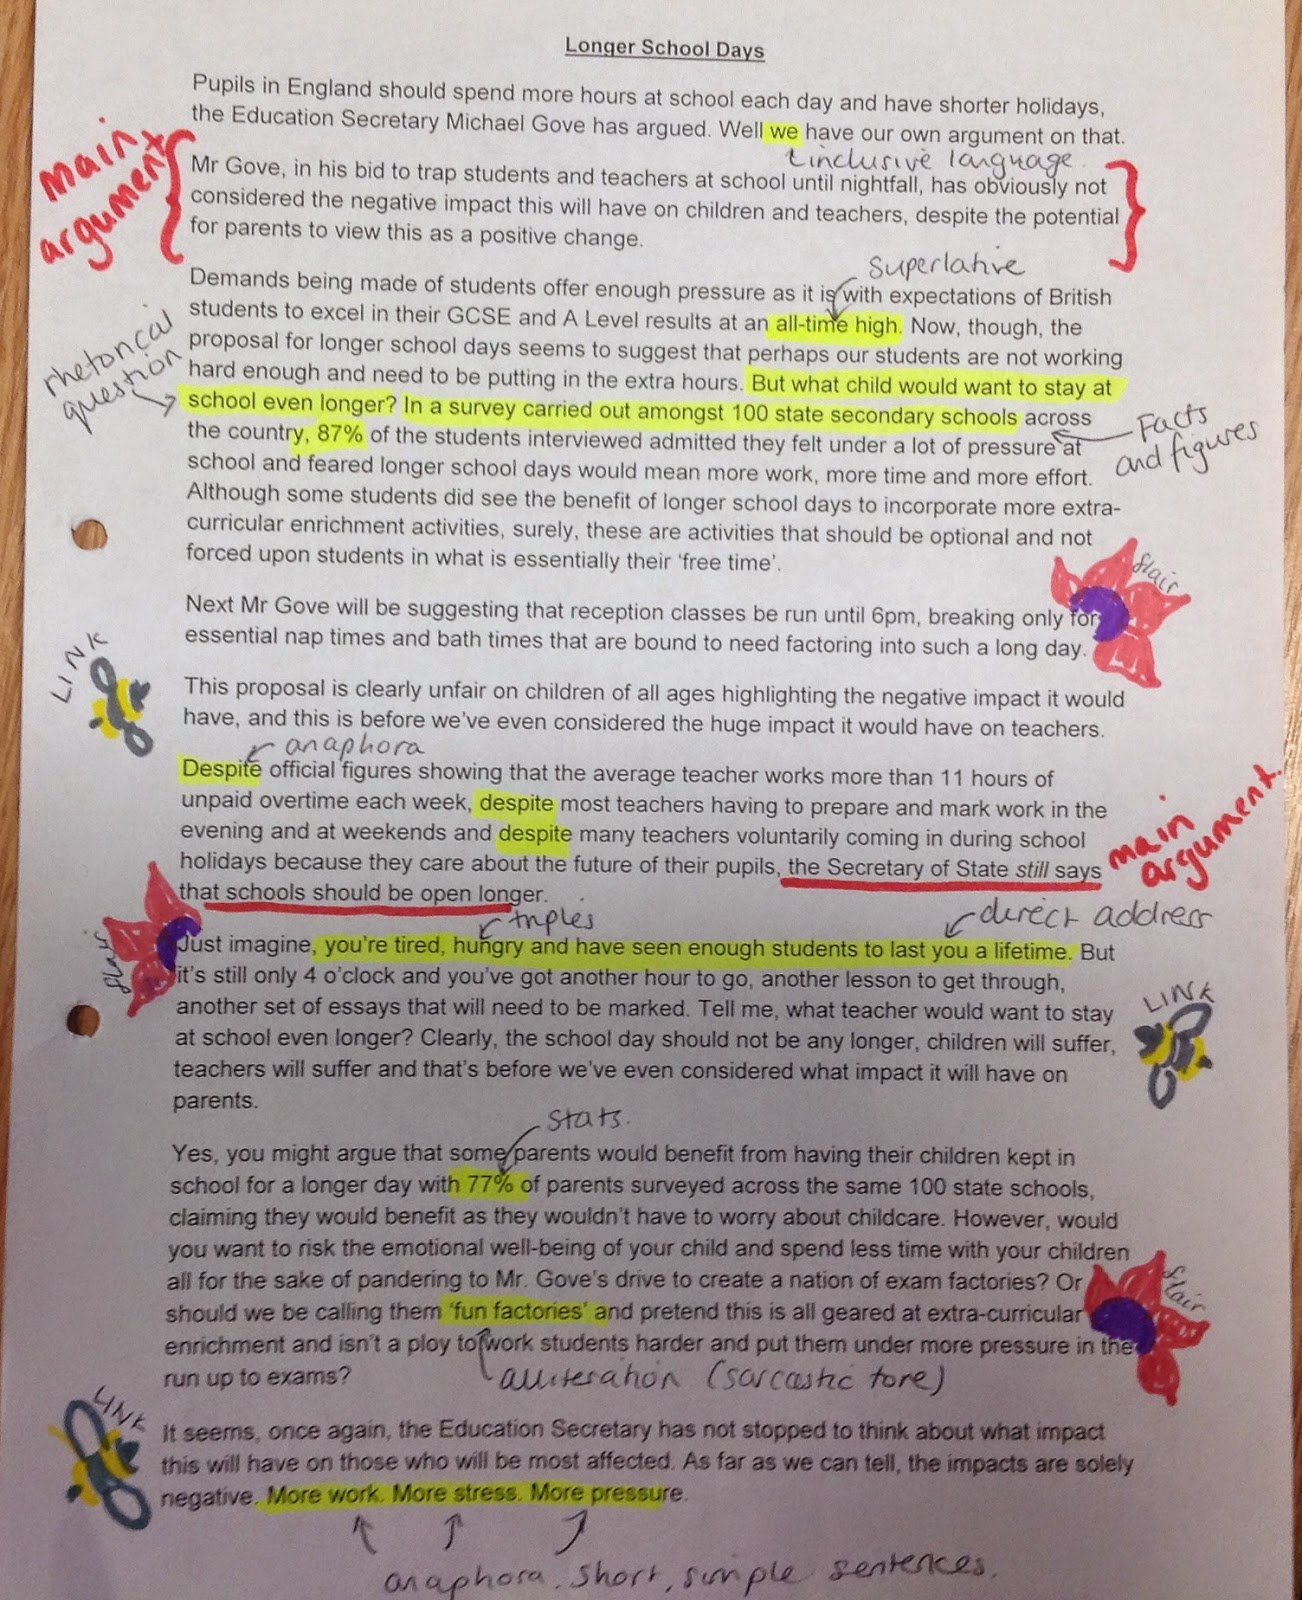 Longer School Days
Pupils in England should spend more hours at school each day and have shorter holidays,
the Education Secretary Michael Gove has argued. Well we have our own argument on that.
inclusive language
main
argument
Mr Gove, in his bid to trap students and teachers at school until nightfall, has obviously not
considered the negative impact this will have on children and teachers, despite the potential
for parents to view this as a positive change.
superlative
Demands being made of students offer enough pressure as it is with expectations of British
students to excel in their GCSE and A Level results at an all-time high. Now, though, the
proposal for longer school days seems to suggest that perhaps our students are not working
hard enough and need to be putting in the extra hours. But what child would want to stay at
rhetorical
question
school even longer? In a survey carried out amongst 100 state secondary schools across
the country, 87% of the students interviewed admitted they felt under a lot of pressure at
Facts
and figures
school and feared longer school days would mean more work, more time and more effort.
Although some students did see the benefit of longer school days to incorporate more extra-
curricular enrichment activities, surely, these are activities that should be optional and not
forced upon students in what is essentially their ‘free time’.
flair
Next Mr Gove will be suggesting that reception classes be run until 6pm, breaking only for
essential nap times and bath times that are bound to need factoring into such a long day.
LINK
This proposal is clearly unfair on children of all ages highlighting the negative impact it would
have, and this is before we’ve even considered the huge impact it would have on teachers.
anaphora
Despite official figures showing that the average teacher works more than 11 hours of
unpaid overtime each week, despite most teachers having to prepare and mark work in the
evening and at weekends and despite many teachers voluntarily coming in during school
holidays because they care about the future of their pupils, the Secretary of State still says
main
argument.
that schools should be open longer.
triples
direct address
flair
Just imagine, you’re tired, hungry and have seen enough students to last you a lifetime. But
it’s still only 4 o’clock and you’ve got another hour to go, another lesson to get through,
another set of essays that will need to be marked. Tell me, what teacher would want to stay
LINK
at school even longer? Clearly, the school day should not be any longer, children will suffer,
teachers will suffer and that’s before we’ve even considered what impact it will have on
parents.
stats.
Yes, you might argue that some parents would benefit from having their children kept in
school for a longer day with 77% of parents surveyed across the same 100 state schools,
claiming they would benefit as they wouldn’t have to worry about childcare. However, would
you want to risk the emotional well-being of your child and spend less time with your children
all for the sake of pandering to Mr. Gove’s drive to create a nation of exam factories? Or
flair
should we be calling them ‘fun factories’ and pretend this is all geared at extra-curricular
enrichment and isn’t a ploy to work students harder and put them under more pressure in the
run up to exams?
alliteration (sarcastic tone)
LINK
It seems, once again, the Education Secretary has not stopped to think about what impact
this will have on those who will be most affected. As far as we can tell, the impacts are solely
negative. More work. More stress. More pressure.
anaphora. short, simple sentences.